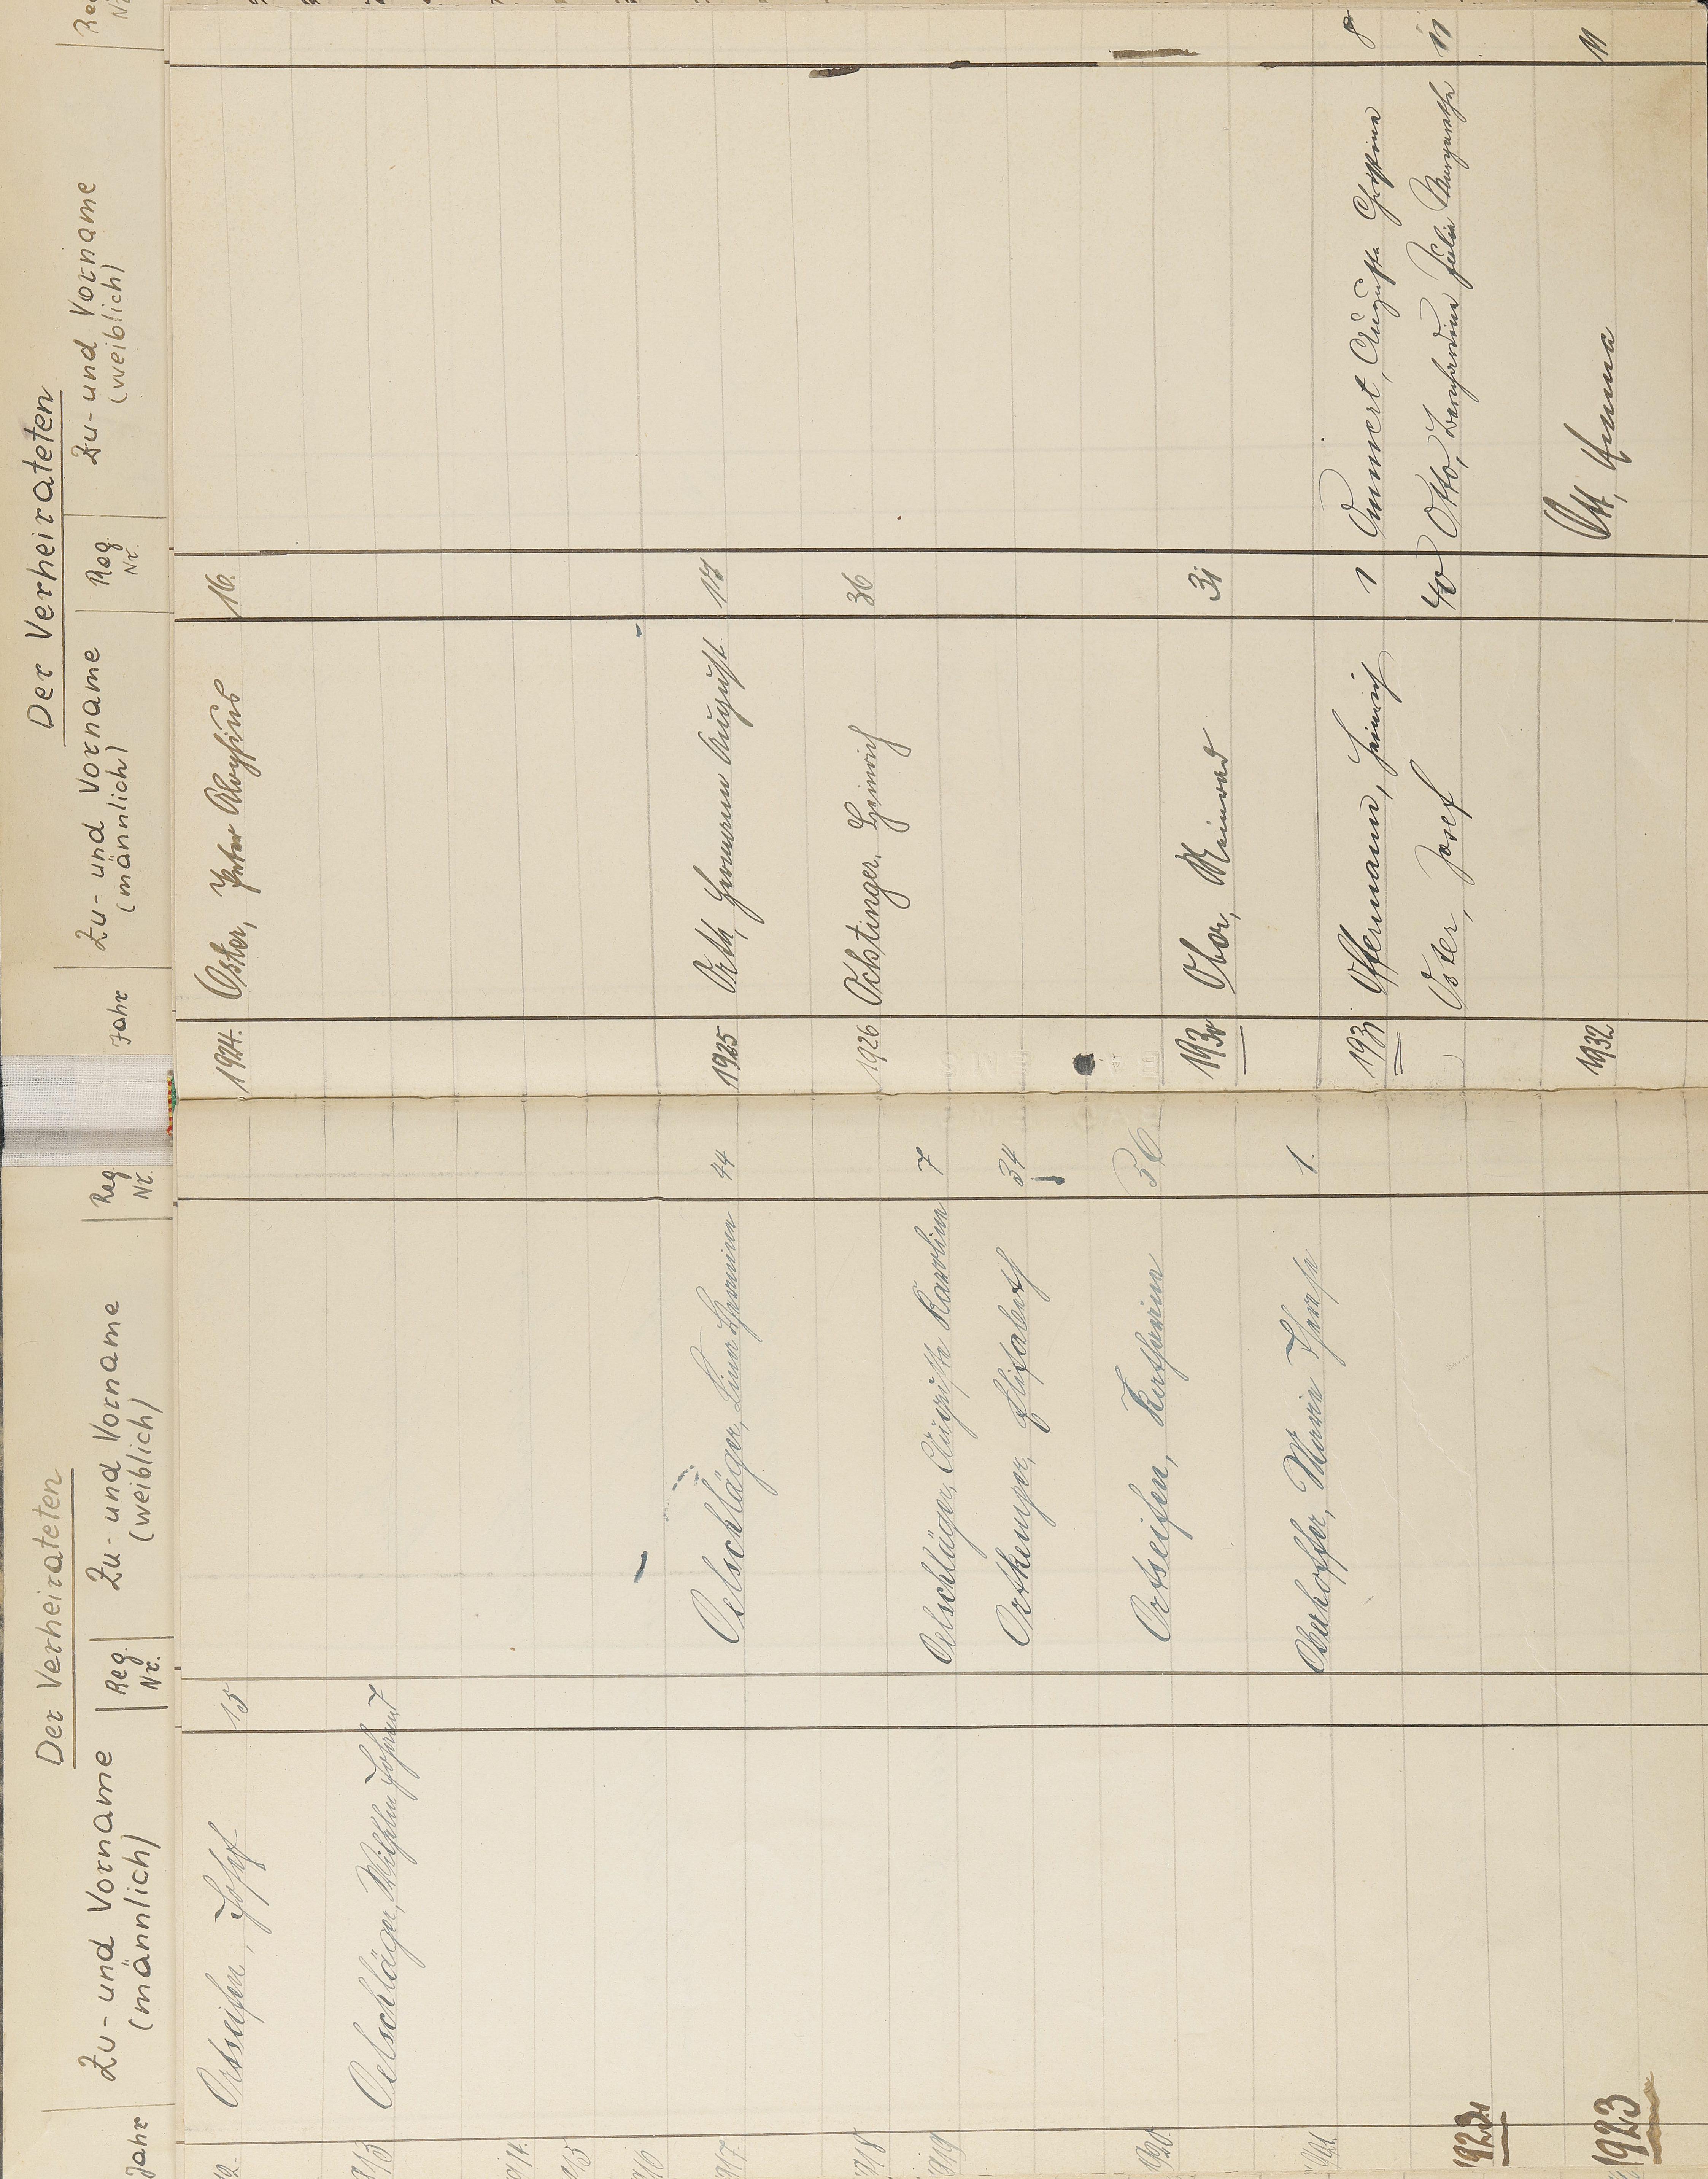 Der Verheirateten
Jahr
Zu- und Vorname
(männlich)
Reg.
Nr.
Zu- und Vorname
(weiblich)
Reg.
Nr.
Ortseifen, Josef 15
1913 Oelschläger, Wilhelm Johann 7
1914.
1915
1916
1917 Oelschläger, Lina Hermine 44
1918
1919 Oelschläger, Auguste Karoline 7
Orthemper, Elisabeth 34
1920. Ortseifen, Katharina 50
1921. Oberhoffer, Maria Theresia 1.
1923
Der Verheirateten
Jahr
Zu- und Vorname
(männlich)
Reg.
Nr.
Zu- und Vorname
(weiblich)
Reg
Nr
1924. Oster, Peter Aloysius 16.
1925 Orth, Hermann August 17
1926 Öchtinger, Heinrich 36
1930 Ober, Meinrad 31
1931 Offermann, Heinrich 1 Ommert, Auguste Christine 8
Oster, Josef 40 Otto, Bernhardine Julie Margarethe 11
1932 Ott, Anna 11